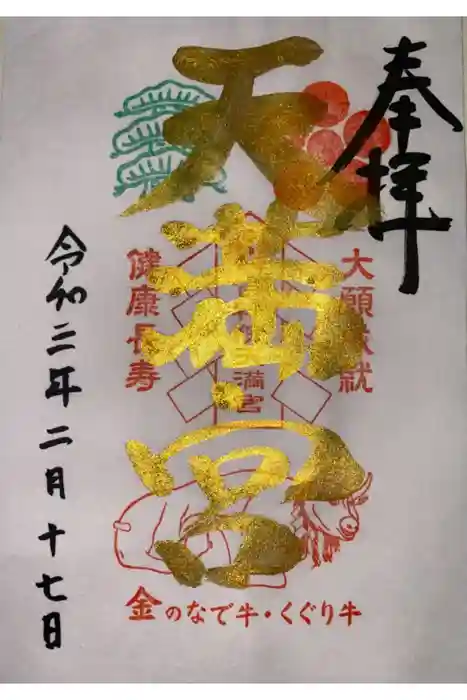 奉拝
天満宮
大願成就
健康長寿
満宮
令和三年二月十七日
金のなで牛・くぐり牛